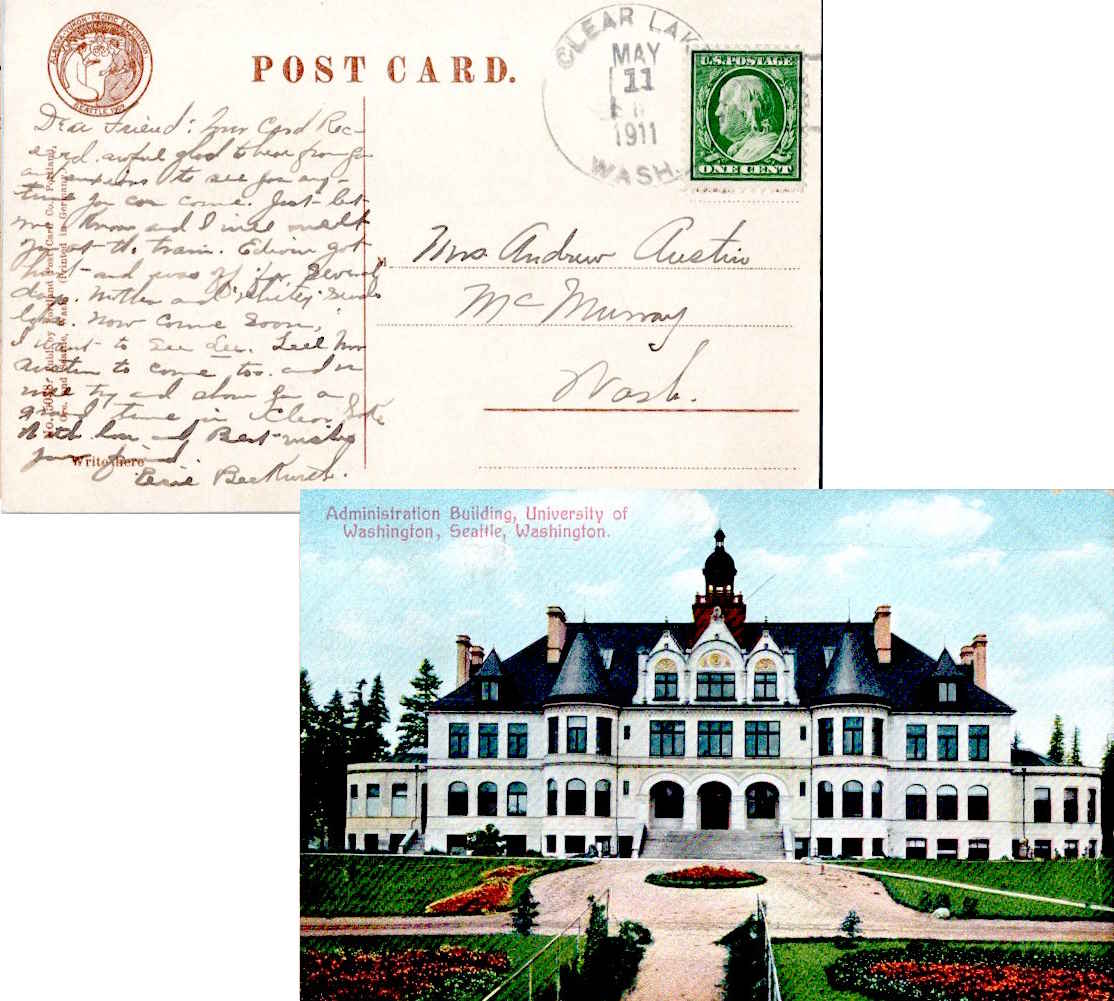 ALASKA-YUKON-PACIFIC EXPOSITION
SEATTLE 1909
POST CARD.
CLEAR LAKE
MAY
11
1911
WASH.
U.S. POSTAGE
ONE CENT
Dear Friend: Your Card Rec-
awful glad to hear from you
anxious to see you any-
time you can come. Just let
me know and I will meet
you at the train. Edwin got
hurt and was off for several
days. Mother and Whitey sends
love. Now come soon,
I want to see Lee. Tell Mr
Austin to come too. and we
will try and show you a
good time in Clear Lake
With love and Best wishes
your friend
Write here
Mrs Andrew Austin
McMurray
Wash.
Administration Building, University of
Washington, Seattle, Washington.